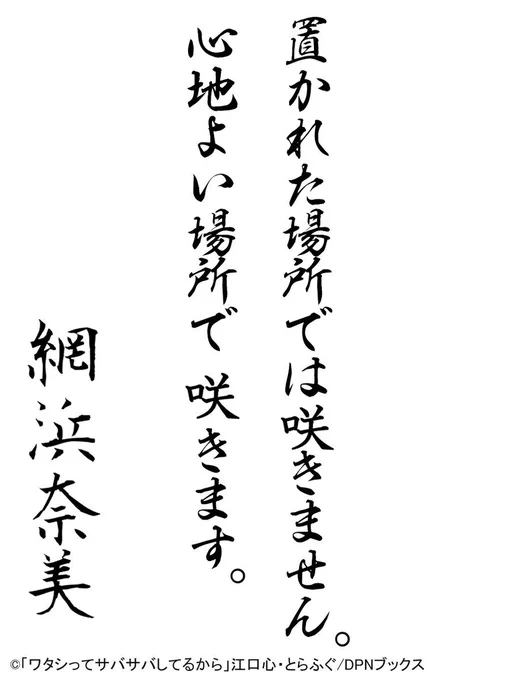 置かれた場所では咲きません。
心地よい場所で咲きます。
網浜奈美
©「ワタシってサバサバしてるから」江口心・とらふぐ/DPNブックス